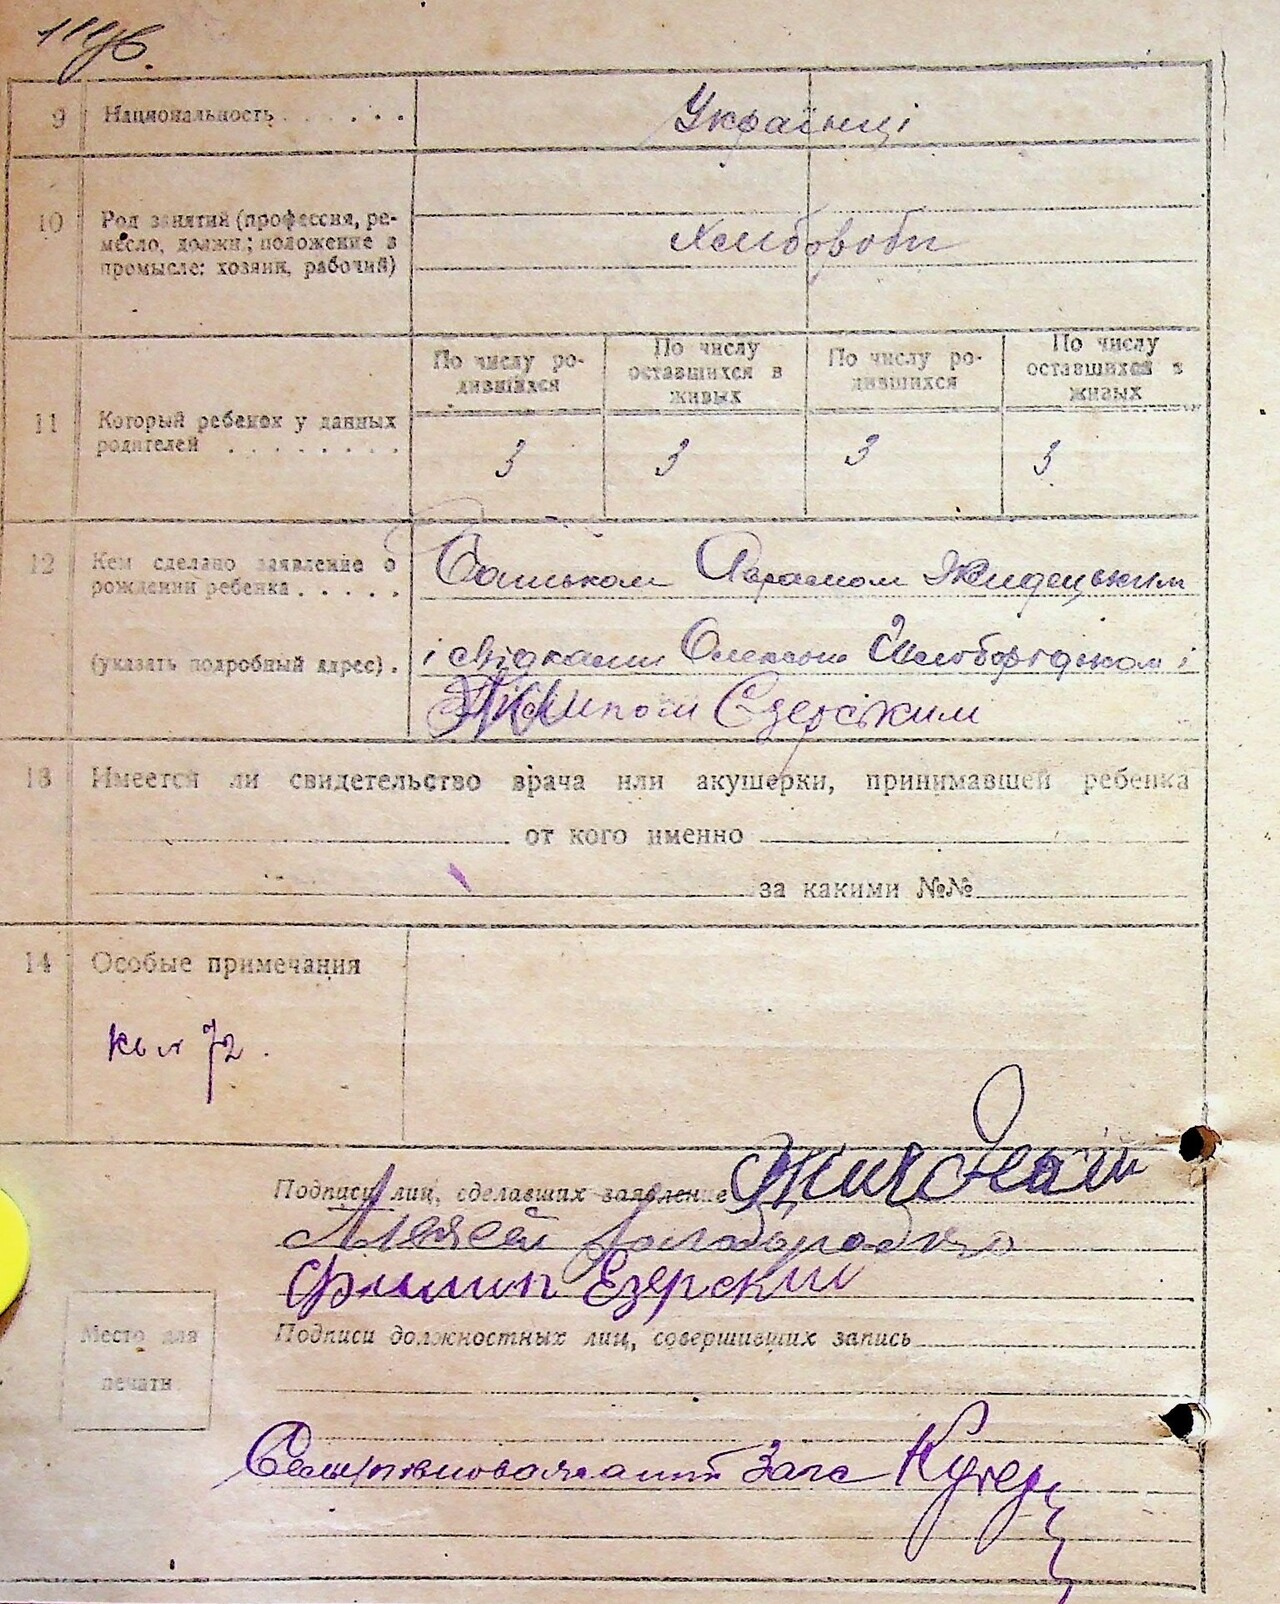 9 Национальность . . . . . . Українці
10 Род занятий (профессия, ре-
месло, должн.; положение в
промысле: хозяин, рабочий)
Хлибороби
По числу ро-
дившихся
По числу
оставшихся в
живых
По числу ро-
дившихся
По числу
оставшихся в
живых
11 Который ребенок у данных
родителей . . . . . . . .
3 3 3 3
12 Кем сделано заявление о
рождении ребенка . . . . .
(указать подробный адрес) .
Батьком Жидецьким
і свідками Олексієм і
Єзерським
13 Имеется ли свидетельство врача или акушерки, принимавшей ребенка
от кого именно
за какими №№
14 Особые примечания
72.
Подписи лиц, сделавших заявление
Филип Езерский
Место для
печати
Подписи должностных лиц, совершивших запись
Загс